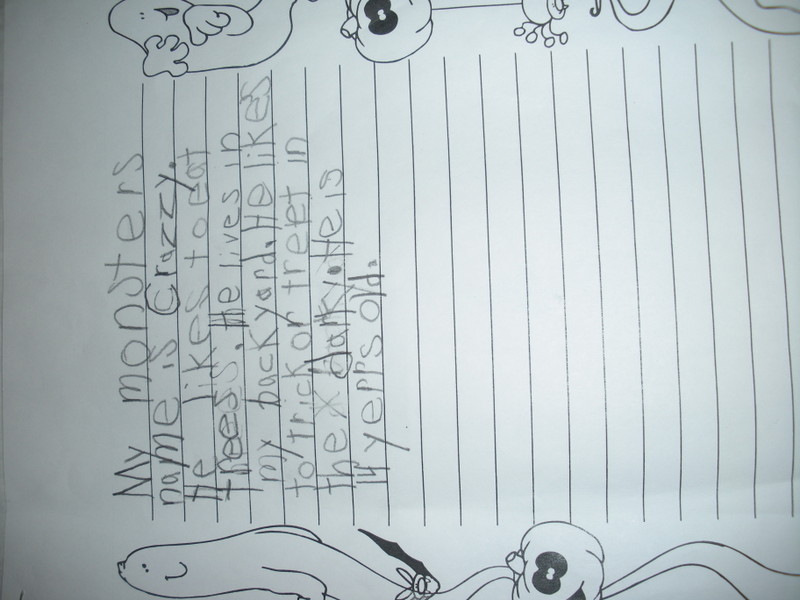 My monsters
name is Crazzy.
He likes to eat
trees. He lives in
my backyard. He likes
to trick or treet in
the dark. He is
14 yerrs old.